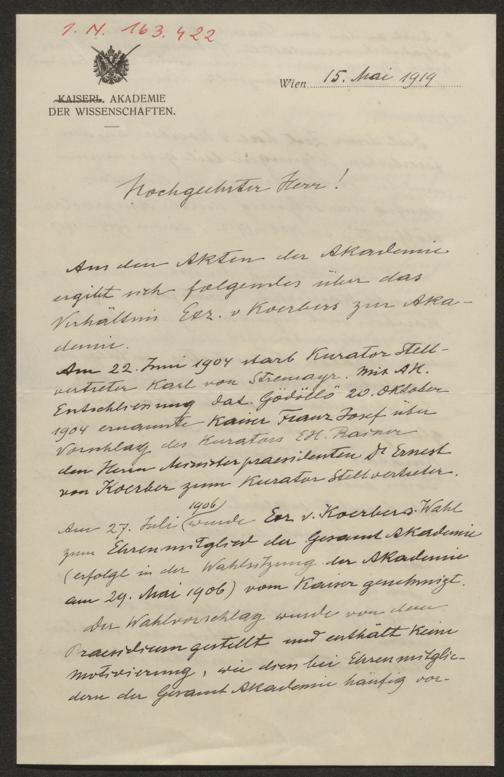 I. N. 163.422
KAISERL. AKADEMIE
DER WISSENSCHAFTEN.
Wien 15. Mai 1919
Hochgeehrter Herr!
Aus den Akten der Akademie
ergibt sich folgendes über das
Verhältnis Exz. v Koerbers zur Aka-
demie.
Am 22. Juni 1904 starb Kurator Stell-
vertreter Karl von Stremayr. Mit AH.
Entschliessung dat. Gödöllö 20. Oktober
1904 ernannte Kaiser Franz Josef über
Vorschlag des Kurators EH. Rainer
den Herrn Ministerpraesidenten Dr Ernest
von Koerber zum Kurator Stellvertreter.
1906
Am 27. Juli wurde Exz v. Koerbers Wahl
zum Ehrenmitglied der Gesamt Akademie
(erfolgt in der Wahlsitzung der Akademie
am 29. Mai 1906) vom Kaiser genehmigt.
Der Wahlvorschlag wurde von dem
Praesidium gestellt und enthält keine
Motivierung, wie dies bei Ehrenmitglie-
dern der Gesamt Akademie häufig vor-